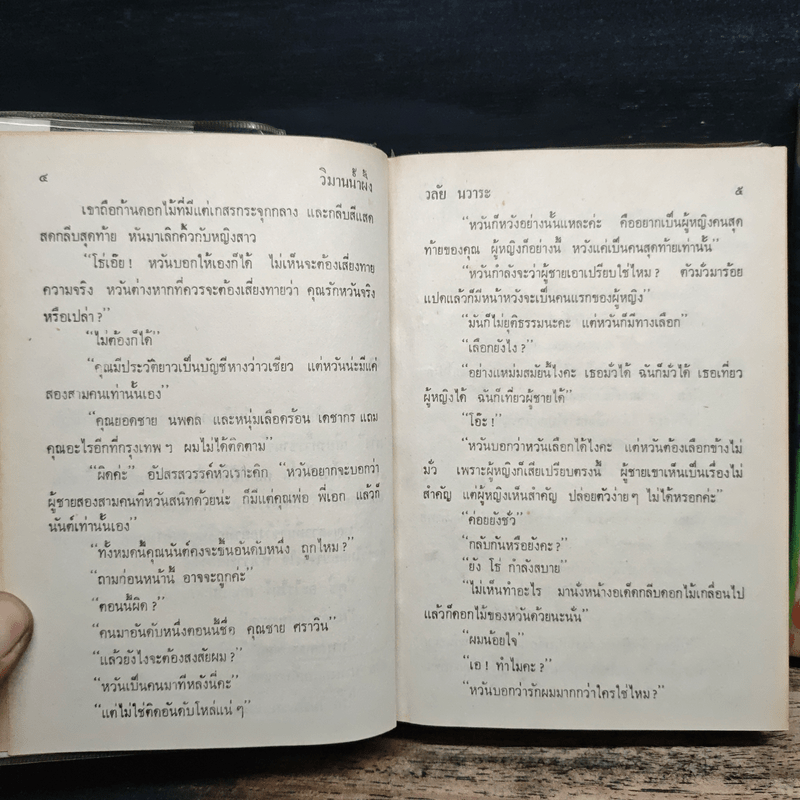 ๔ วิมานน้ำผึ้ง
เขาถือก้านดอกไม้ที่มีแต่เกสรกระจุกกลาง และกลีบสีแสด
สดกลีบสุดท้าย หันมาเลิกคิ้วกับหญิงสาว
“โธ่เอ๊ย! หวันบอกให้เองก็ได้ ไม่เห็นจะต้องเสี่ยงทาย
ความจริง หวันต่างหากที่ควรจะต้องเสี่ยงทายว่า คุณรักหวันจริง
หรือเปล่า?”
“ไม่ต้องก็ได้”
“คุณมีประวัติยาวเป็นบัญชีหางว่าวเชียว แต่หวันน่ะมีแค่
สองสามคนเท่านั้นเอง”
“คุณยอดชาย นพดล และหนุ่มเลือดร้อน เดชากร แถม
คุณอะไรอีกที่กรุงเทพฯ ผมไม่ได้ติดตาม”
“ผิดค่ะ” อัปสรสวรรค์หัวเราะคิก “หวันอยากจะบอกว่า
ผู้ชายสองสามคนที่หวันสนิทด้วยน่ะ ก็มีแต่คุณพ่อ พี่เอก แล้วก็
นันต์เท่านั้นเอง”
“ทั้งหมดนี้คุณนันต์คงจะขึ้นอันดับหนึ่ง ถูกไหม?”
“ถามก่อนหน้านี้ อาจจะถูกค่ะ”
“ตอนนี้ผิด?”
“คนมาอันดับหนึ่งตอนนี้ชื่อ คุณชาย ศราวิน”
“แล้วยังไงจะต้องสงสัยผม?”
“หวันเป็นคนมาทีหลังนี่คะ”
“แต่ไม่ใช่ติดอันดับโหล่แน่ๆ”
วลัย นวาระ ๕
“หวันก็หวังอย่างนั้นแหละค่ะ คืออยากเป็นผู้หญิงคนสุด
ท้ายของคุณ ผู้หญิงก็อย่างนี้ หวังแค่เป็นคนสุดท้ายเท่านั้น”
“หวันกำลังจะว่าผู้ชายเอาเปรียบใช่ไหม? ตัวมั่วมาร้อย
แปดแล้วก็มีหน้าหวังจะเป็นคนแรกของผู้หญิง”
“มันก็ไม่ยุติธรรมนะคะ แต่หวันก็มีทางเลือก”
“เลือกยังไง?”
“อย่างแหม่มสมัยนี้ไงคะ เธอมั่วได้ ฉันก็มั่วได้ เธอเที่ยว
ผู้หญิงได้ ฉันก็เที่ยวผู้ชายได้”
“โอ๊ะ!”
“หวันบอกว่าหวันเลือกได้ไงคะ แต่หวันต้องเลือกข้างไม่
มั่ว เพราะผู้หญิงก็เสียเปรียบตรงนี้ ผู้ชายเขาเห็นเป็นเรื่องไม่
สำคัญ แต่ผู้หญิงเห็นสำคัญ ปล่อยตัวง่ายๆ ไม่ได้หรอกค่ะ”
“ค่อยยังชั่ว”
“กลับกันหรือยังคะ?”
“ยัง โธ่ กำลังสบาย”
“ไม่เห็นทำอะไร มานั่งหน้างอเด็ดกลีบดอกไม้เกลื่อนไป
แล้วก็ดอกไม้ของหวันด้วยนะนั่น”
“ผมน้อยใจ”
“เอ! ทำไมคะ?”
“หวันบอกว่ารักผมมากกว่าใครใช่ไหม?”